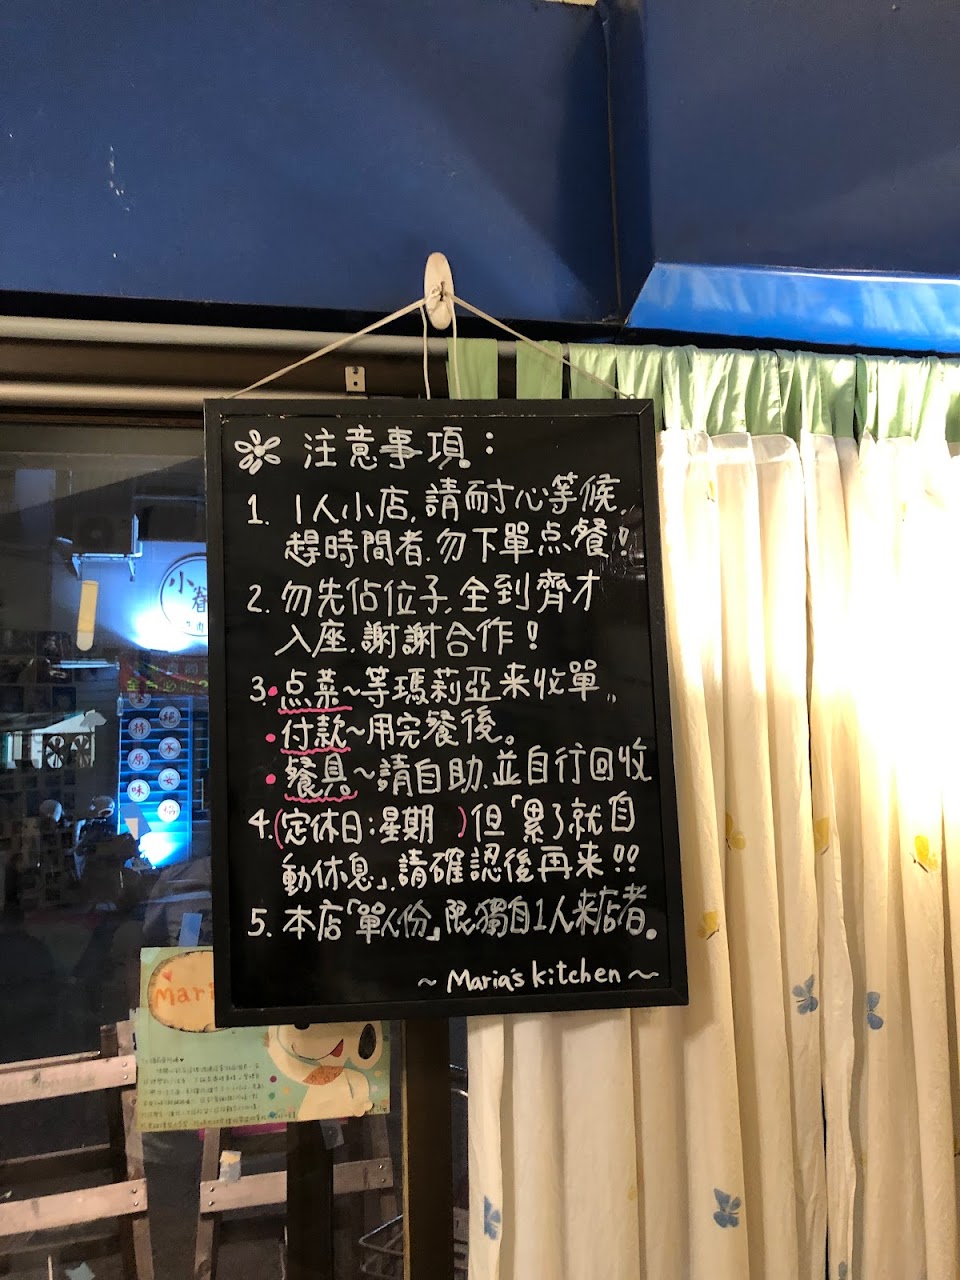 注意事項：
1. 1人小店，請耐心等候，
趕時間者，勿下單点餐！
2. 勿先佔位子，全到齊才
入座，謝謝合作！
3.•点菜~等瑪莉亞来收單。
•付款~用完餐後。
•餐具~請自助，並自行回收
4.(定休日：星期 )但「累了就自
動休息」，請確認後再来！！
5. 本店「單人份」限獨自1人来店者。
~ Maria's kitchen ~
小
持 絕
原 不
味 妥
Mari